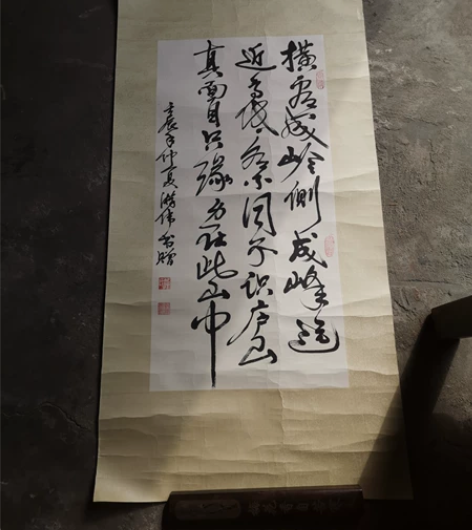 横看成岭侧成峰远
近高低各不同不识庐山
真面目只缘身在此山中
壬辰年仲夏